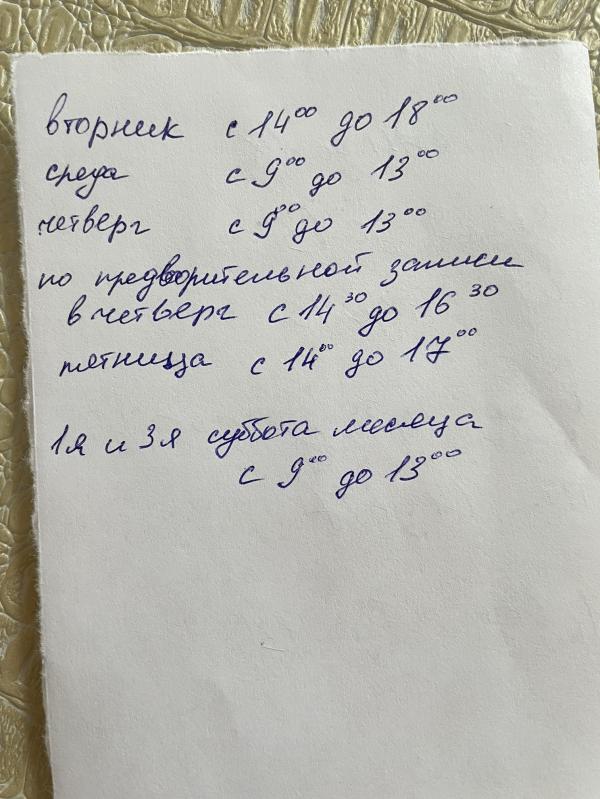 вторник с 14⁰⁰ до 18⁰⁰
среда с 9⁰⁰ до 13⁰⁰
четверг с 9⁰⁰ до 13⁰⁰
по предворительной записи
в четверг с 14³⁰ до 16³⁰
пятница с 14⁰⁰ до 17⁰⁰
1я и 3я суббота месяца
с 9⁰⁰ до 13⁰⁰